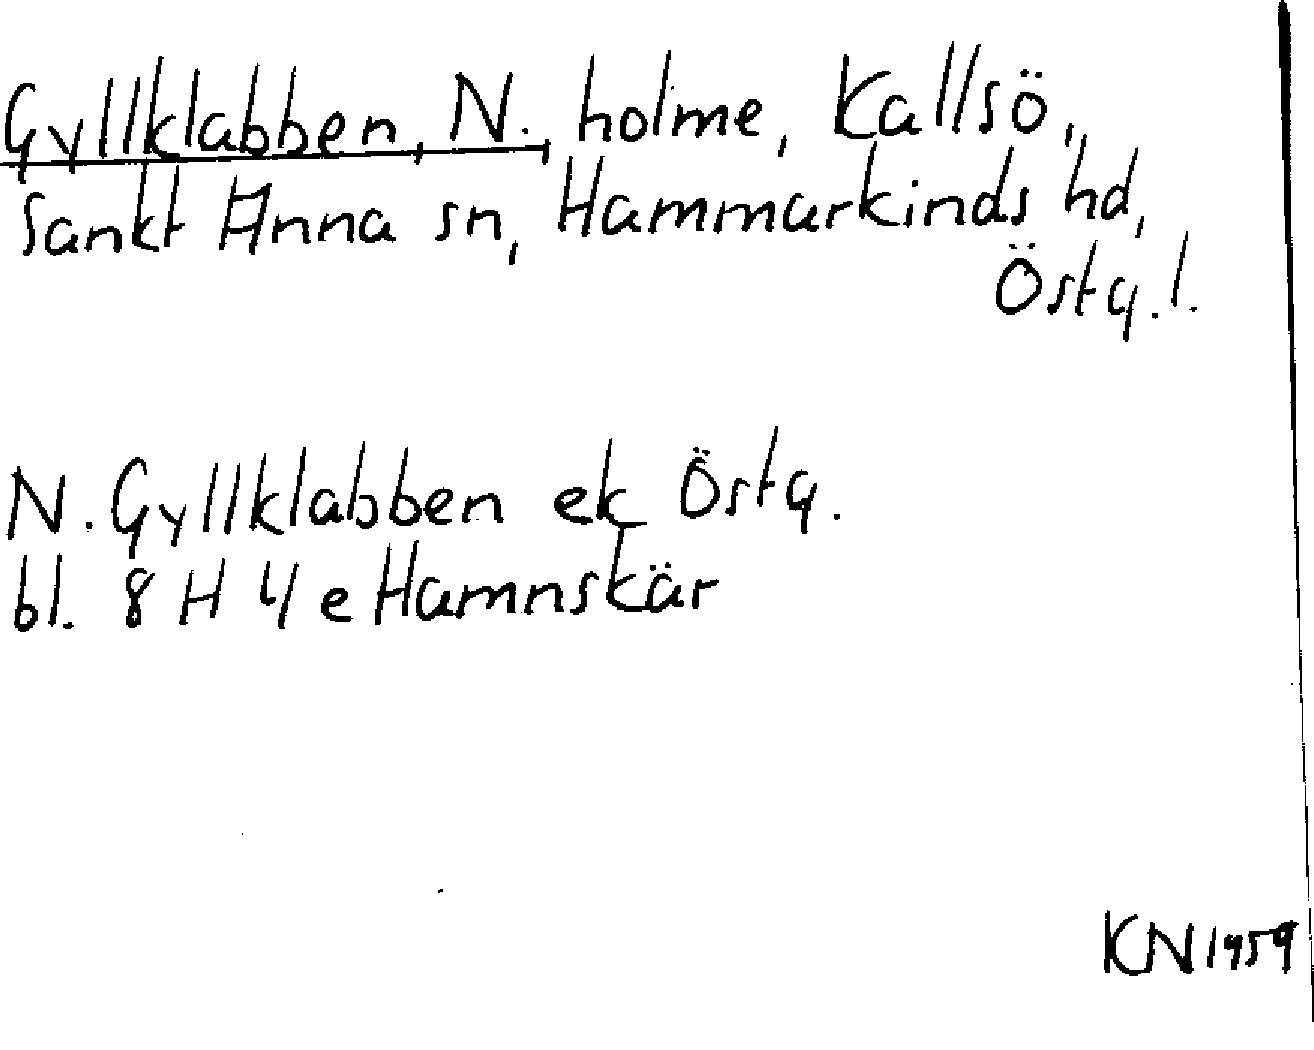 Gyllklabben, N., holme, Kallsö,
Sankt Anna sn, Hammarkinds hd,
Östg.l.
N. Gyllklabben ek Östg.
bl. 8 H 4 e Hamnskär
KN 1959